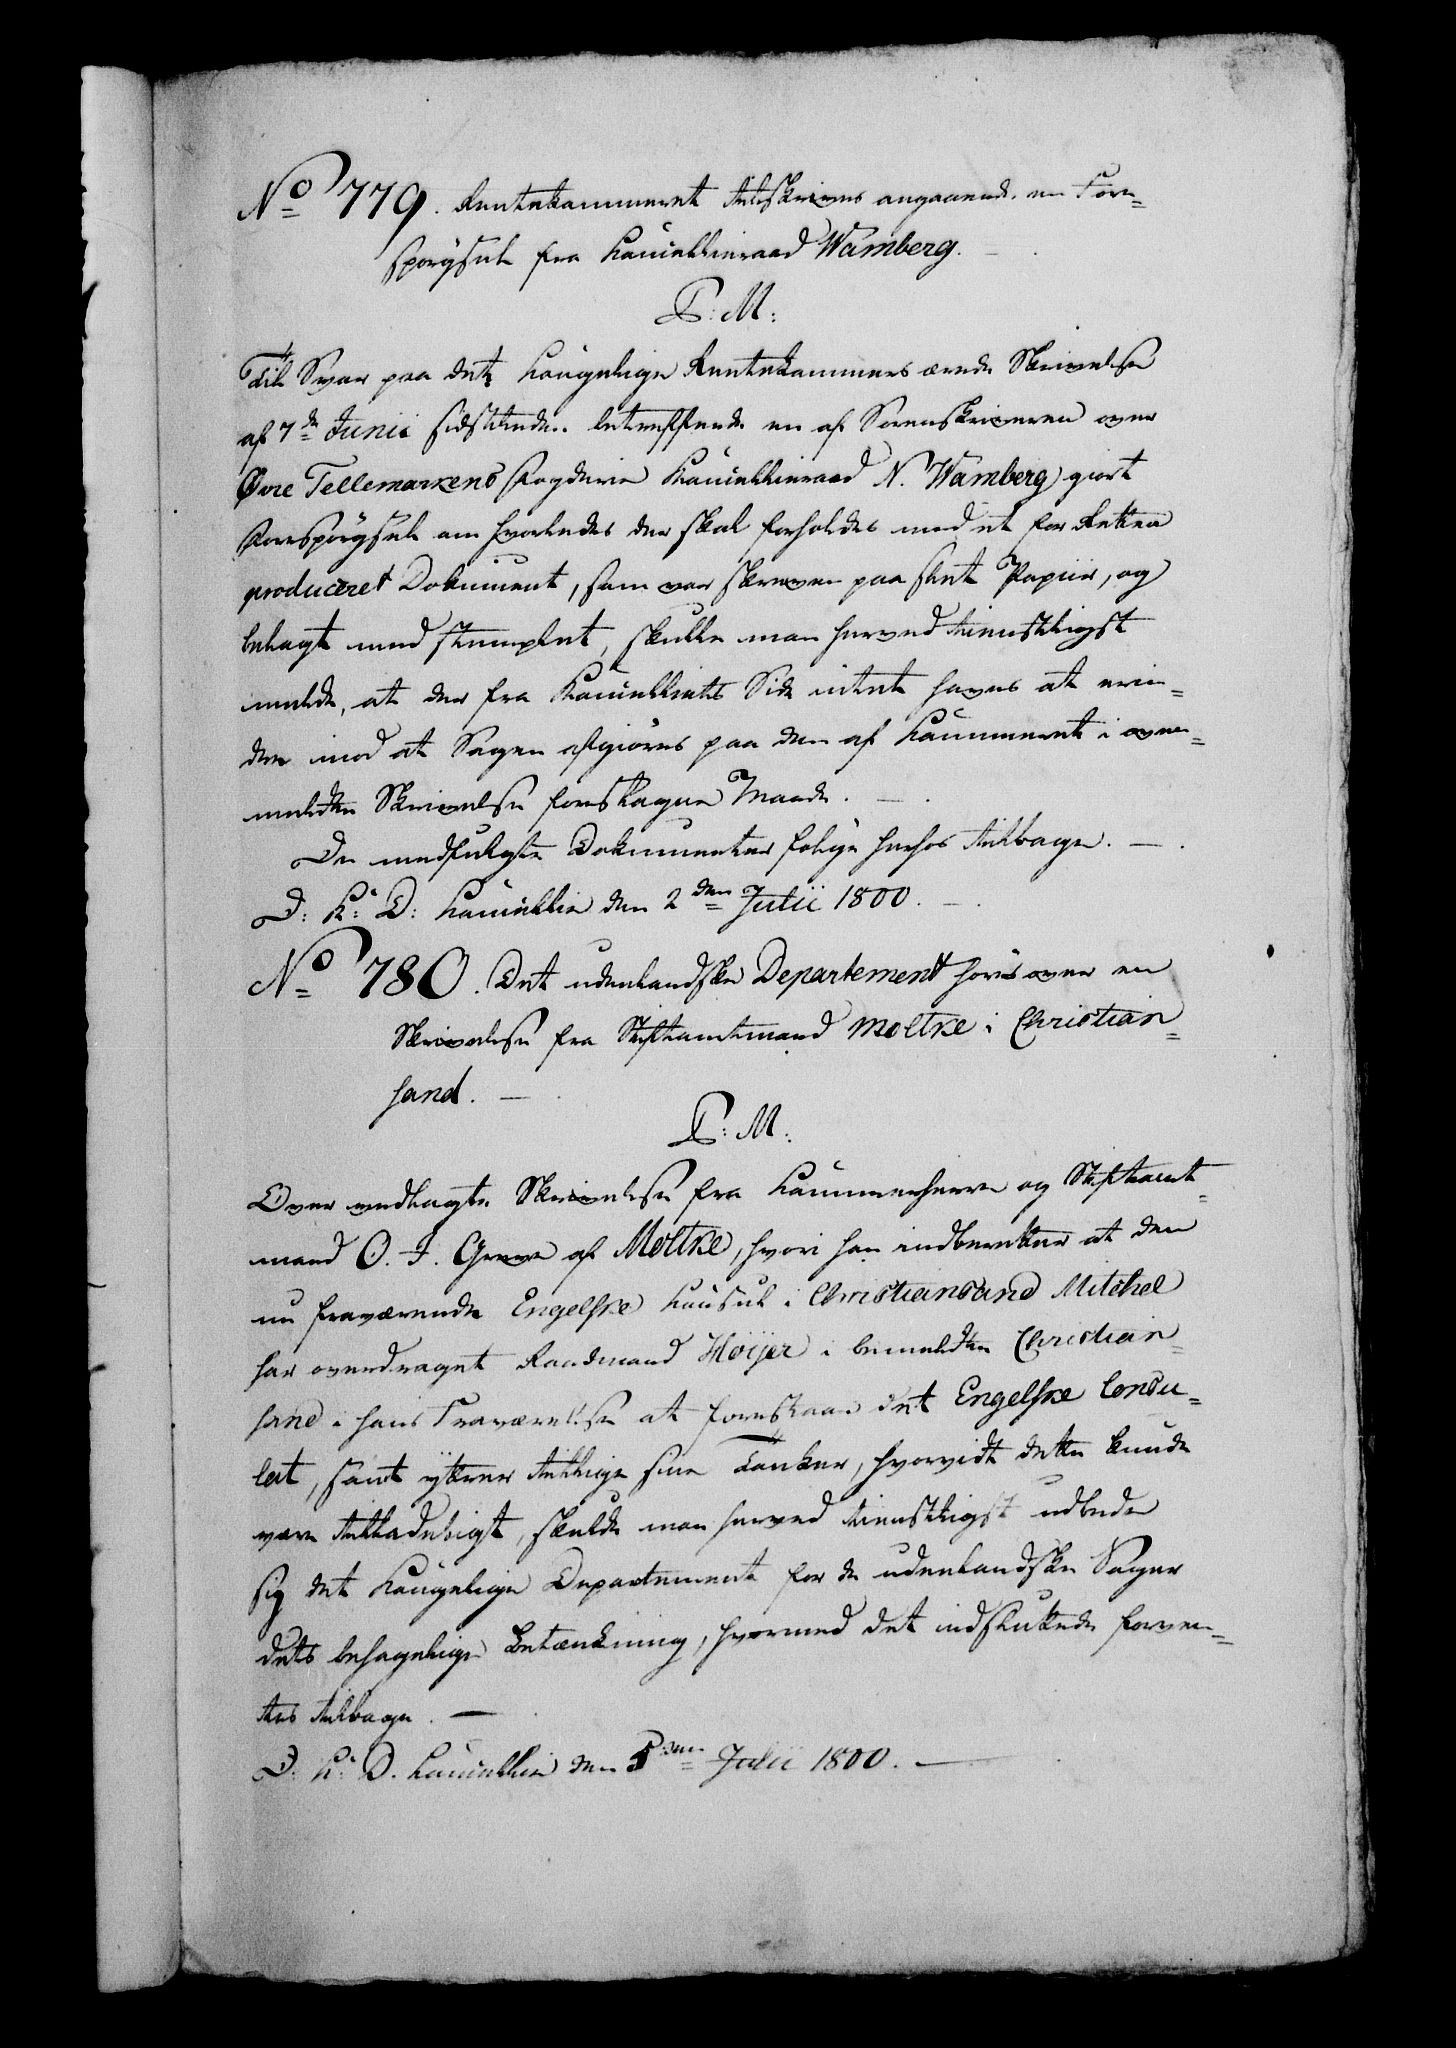 No 779. Rentekammeret tilskrives angaaende en Fore=
spörgsel fra Cancellieraad Wamberg. —
P: M:
Til Svar paa det Kongelige Rentekammers ærede Skrivelse
af 7de Junii sidstleden betreffende en af Sorenskriveren over
Øvre Tellemarkens Fogderie Kancellieraad N. Wamberg giort
Forespörgsel om hvorledes der skal forholdes med et for Retten
produceret Dokument, som var skreven paa slet Papiir, og
belagt med stemplet, skulle man herved tienstligst
melde, at der fra Kancelliets Side intet haves at erin=
dre imod at Sagen afgiöres paa den af Kammeret i oven=
meldte Skrivelse foreslagne Maade. —
De medfulgte Dokumenter fölge hoshos tilbage. —
D: K: D: Cancellie den 2den Julii 1800. —
No 780. Det udenlandske Departement höres over en
Skrivelse fra Stiftamtmand Moltke i Christian=
sand. —
P: M:
Over vedlagte Skrivelse fra Kammerherre og Stiftamt=
mand O. J. Greve af Moltke, hvori han indberetter at den
nu fraværende Engelske Consul i Christiansand Mitchel
har overdraget Raadmand Höijer i bemeldte Christian=
sand i hans Fraværelse at forestaae det Engelske Consu=
lat, samt yttrer tillige sine Tanker, hvorvidt dette kunde
være tilladeligt, skulde man herved tienstligst udbede
sig det Kongelige Departement for de udenlandske Sager
dets behagelige Betænkning, hvormed det indsluttede forven=
tes tilbage. —
D. K. D. Cancellie den 5den Julii 1800. —